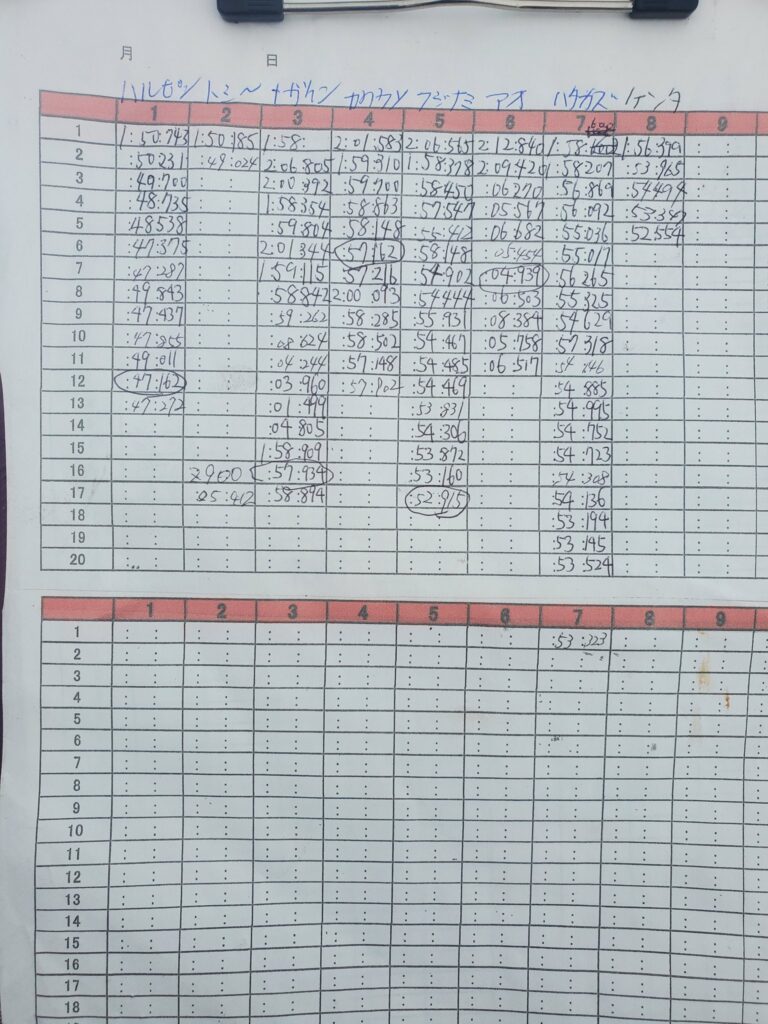 月 日
ハルピン トミー ナガケン カワウソ フジナミ アオ ハタカズ ケンタ
1 2 3 4 5 6 7 8 9
1 1:50:743 1:50:185 1:58: 2:01:583 2:06:565 2:12:840 1:58: 1:56:399
2 :50231 :49:024 2:06:805 1:59:310 1:58:378 2:09:420 1:58207 :53:965
3 :49:700 : : 2:00:392 :59:700 :58:450 :06270 :56:869 :54494
4 :48:735 : : 1:58354 :58:863 :57:547 :05:567 :56:092
5 :48538 : : :59:804 :58:148 :55:412 :06:682 :55:036 :52:554
6 :47:375 : : 2:01344 :57:162 :58:148 :05:454 :55:017 : :
7 :47:287 : : 1:59:115 :57:216 :54:902 :04:939 :56265 : :
8 :49:843 : : :58:842 2:00:093 :54444 :06:503 :55:325 : :
9 :47:437 : : :59:262 :58:285 :55:931 :08:384 :54:629 : :
10 :47:855 : : :08:624 :58:502 :54:467 :05:758 :57:318 : :
11 :49:011 : : :04:244 :57:148 :54:485 :06:517 : :
12 :47:162 : : :03:960 :54:469 : : :54:885 : :
13 :47:272 : : :01:499 : : :53:831 : : :54:995 : :
14 : : : : :04:805 : : :54:306 : : :54:752 : :
15 : : : : 1:58:909 : : :53:872 : : :54:723 : :
16 : : 2900 :57:934 : : :53:160 : : :54:308 : :
17 : : :05:412 :58:894 : : :52:915 : : :54:136 : :
18 : : : : : : : : : : : : :53:194 : :
19 : : : : : : : : : : : : :53:145 : :
20 : : : : : : : : : : : : :53:524 : :
1 2 3 4 5 6 7 8 9
1 : : : : : : : : : : : : :53:323 : : : :
2
3
4
5
6
7
8
9
10
11
12
13
14
15
16
17
18